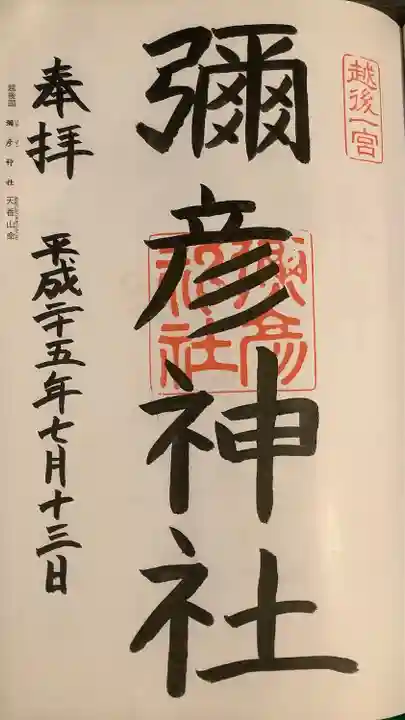 越後一宮
彌彦神社
彌彦神社
奉拝
平成二十五年七月十三日
越後國 彌彦神社 天香山命